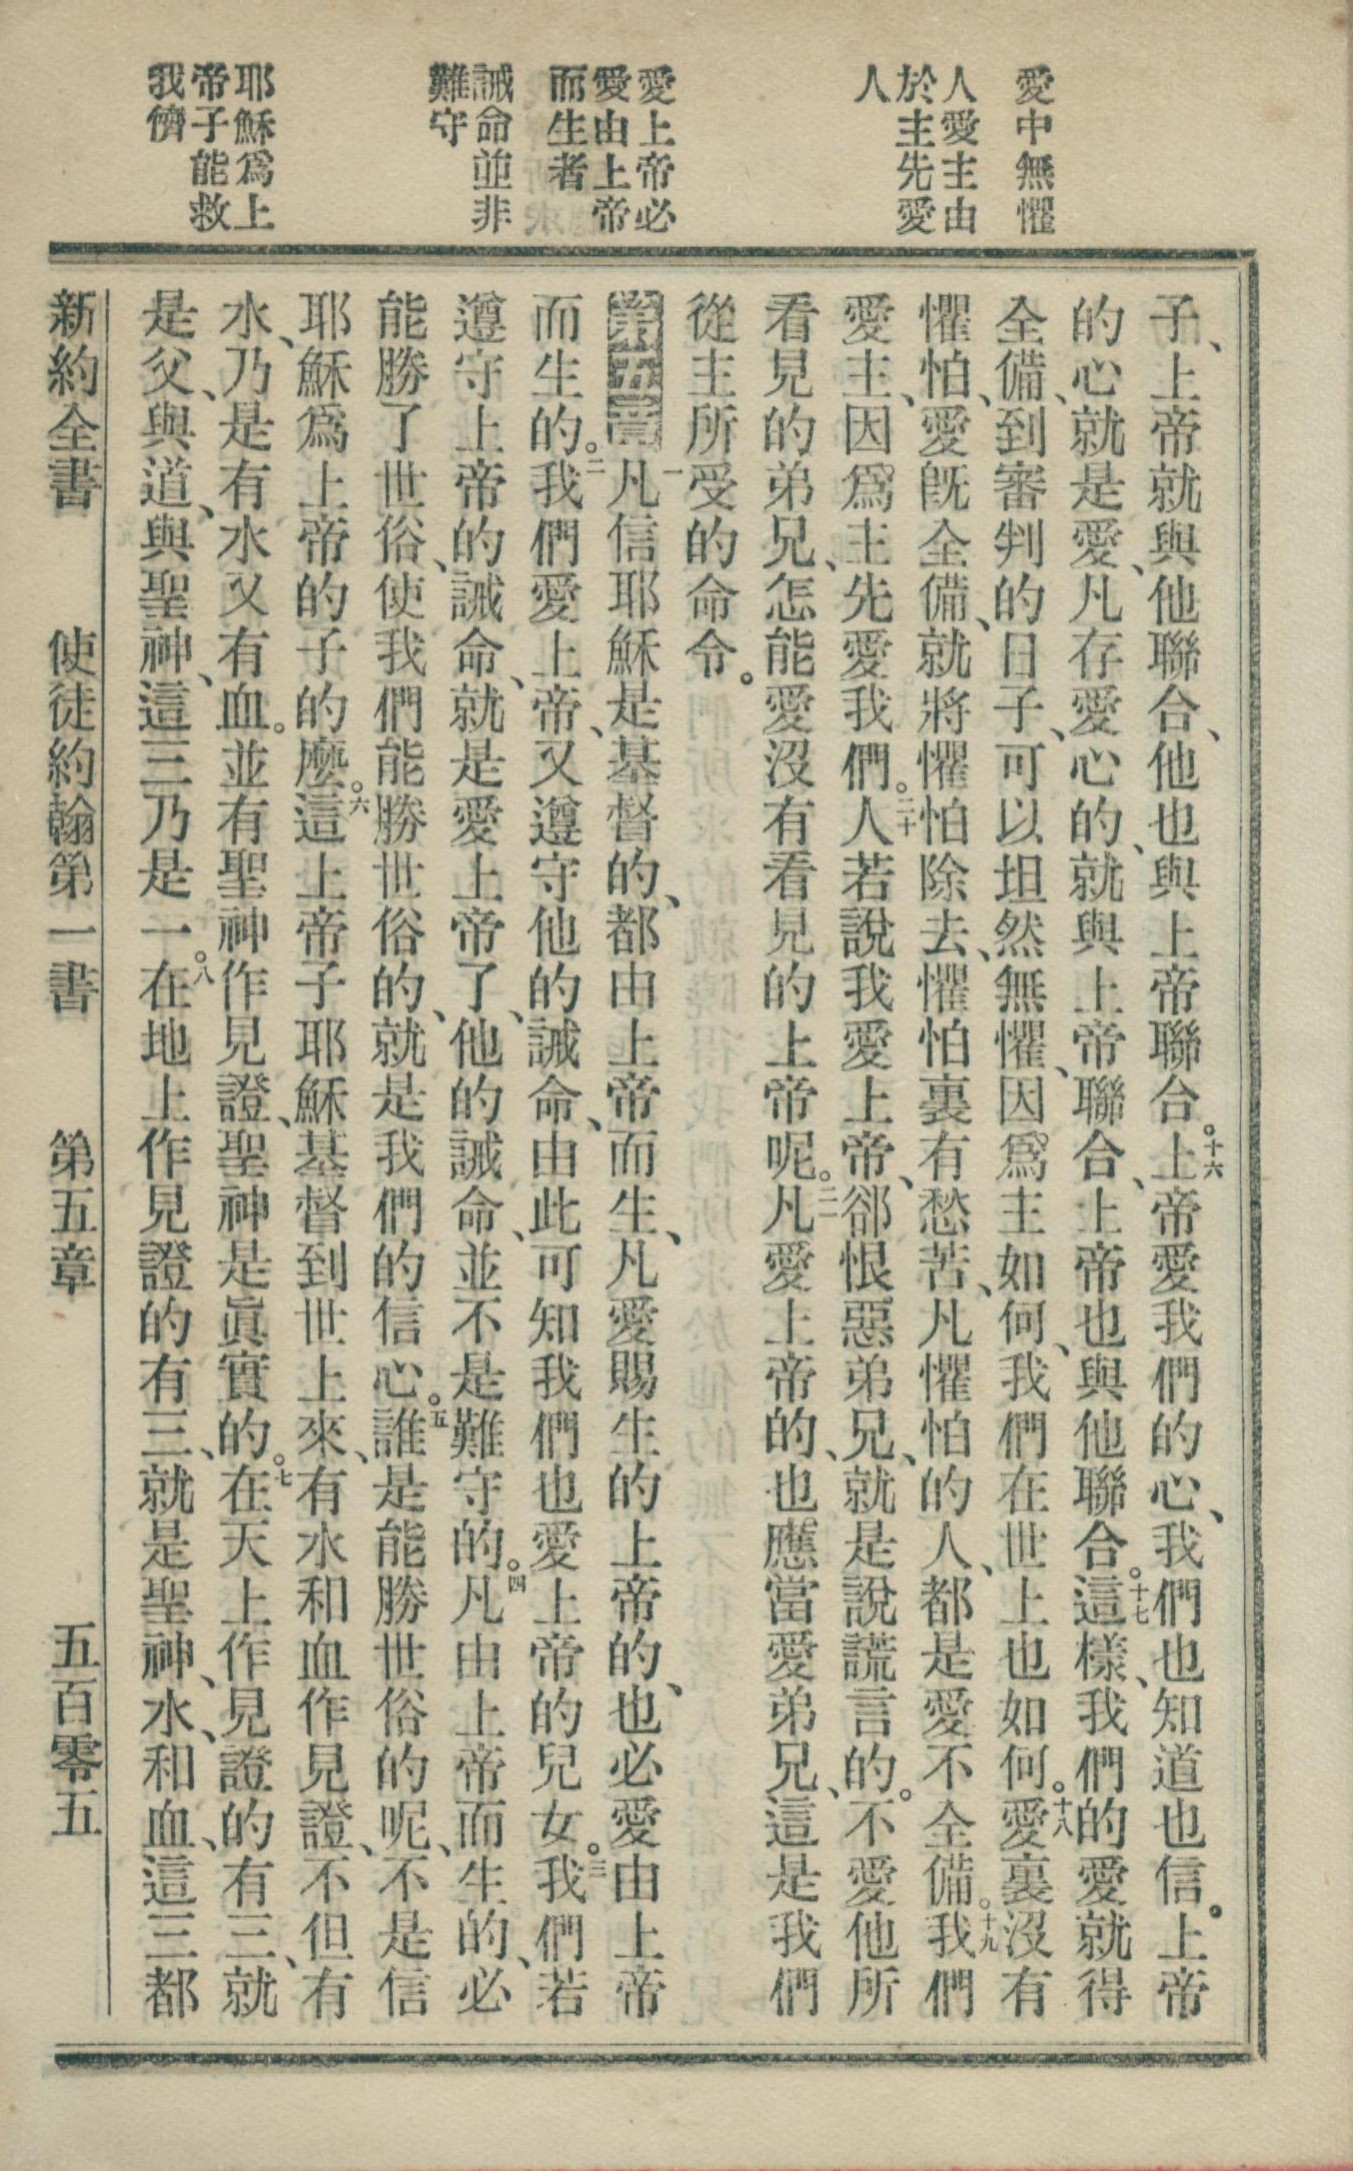 愛中無懼
人愛主由
於主先愛
人
愛上帝必
愛由上帝
而生者
誡命並非
難守
耶穌爲上
帝子能救
我儕
子、上帝就與他聯合、他也與上帝聯合。十六上帝愛我們的心、我們也知道也信。上帝
的心就是愛、凡存愛心的、就與上帝聯合、上帝也與他聯合。十七這樣、我們的愛就得
全備、到審判的日子、可以坦然無懼、因爲主如何、我們在世上也如何。十八愛裏沒有
懼怕、愛旣全備、就將懼怕除去、懼怕裏有愁苦、凡懼怕的人、都是愛不全備。十九我們
愛主、因爲主先愛我們。二十人若說我愛上帝、郤恨惡弟兄、就是說謊言的。不愛他所
看見的弟兄、怎能愛沒有看見的上帝呢。二一凡愛上帝的、也應當愛弟兄、這是我們
從主所受的命令。
第五章一凡信耶穌是基督的、都由上帝而生、凡愛賜生的上帝的、也必愛由上帝
而生的。二我們愛上帝、又遵守他的誡命、由此可知我們也愛上帝的兒女。三我們若
遵守上帝的誡命、就是愛上帝了、他的誡命、並不是難守的。四凡由上帝而生的、必
能勝了世俗、使我們能勝世俗的、就是我們的信心。五誰是能勝世俗的呢、不是信
耶穌爲上帝的子的麽。六這上帝子耶穌基督到世上來、有水和血作見證、不但有
水、乃是有水又有血。並有聖神作見證、聖神是眞實的。七在天上作見證的有三、就
是父、與道、與聖神、這三乃是一。八在地上作見證的有三、就是聖神、水、和血、這三都
新約全書 使徒約翰第一書 第五章 五百零五